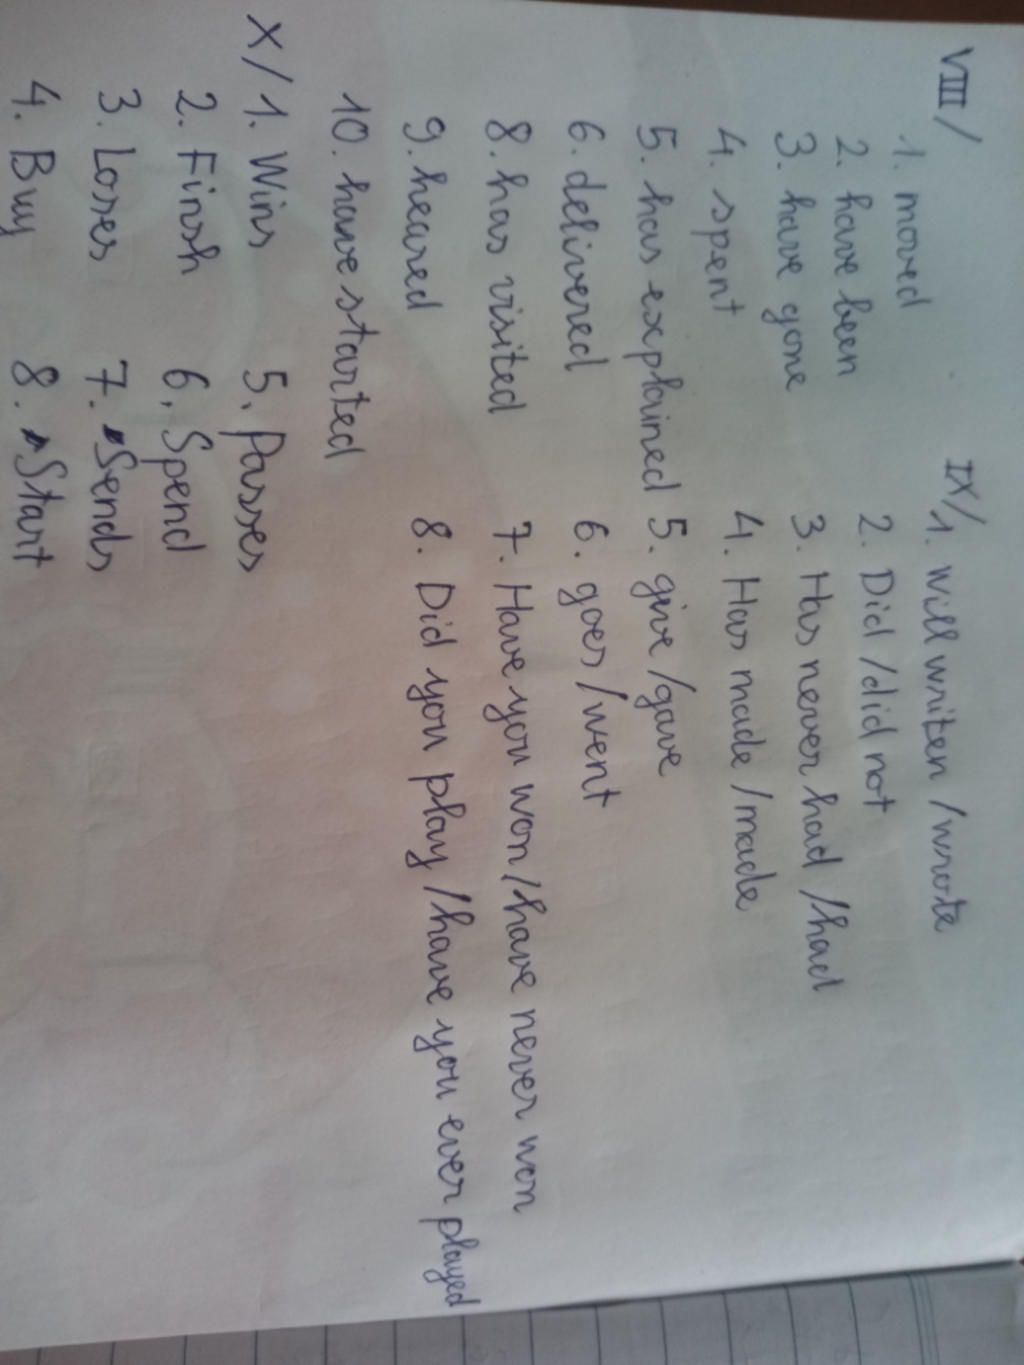 VIII/
1. moved
2. have been
3. have gone
4. spent
5. has explained
6. delivered
8. has visited
9. heared
10. have started
IX/
1. Will writen / wrote
2. Did / did not
3. Has never had / had
4. Has made / made
5. give / gave
6. goes / went
7. Have you won / have never won
8. Did you play / have you ever played
X/ 1. Wins
2. Finsh
3. Loses
4. Buy
5. Passes
6. Spend
7. Sends
8. Start